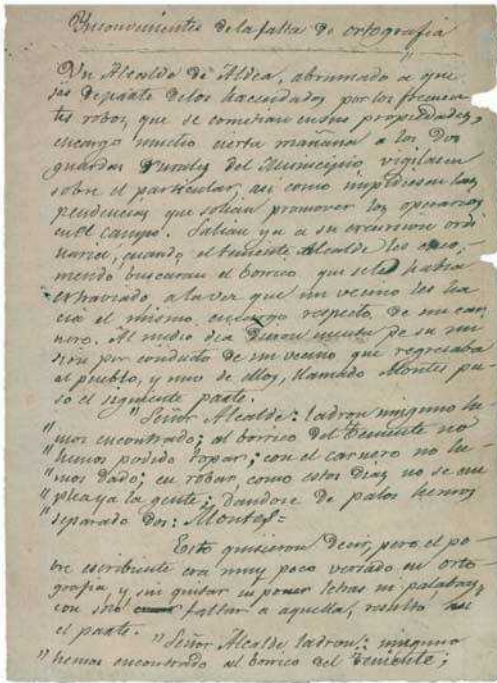 Inconvenientes de la falta de ortografia
Un Alcalde de Aldea, abrumado a que
jas departe delos hacendados por los frecuen
tes robos, que se cometian en sus propiedades,
encargo mucho cierta mañana a los dos
guardas rurales del Municipio vigilasen
sobre el particular, asi como impidiesen las
pendencias que solian promover los operarios
en el campo. Salian ya a su excursion ordi
naria, cuando el teniente Alcalde les enco-
mendo buscaran el borrico que se le había
extraviado, a la vez que un vecino les ha
cia el mismo encargo respecto de su car
nero. Al medio dia dieron cuenta de su mi
sion por conducto de un vecino que regresaba
al pueblo, y uno de ellos, llamado Montes pu
so el siguiente parte.
"Señor Alcalde: ladron ninguno he
"mos encontrado; al borrico del Teniente no
"hemos podido topar; con el carnero no he
"mos dado; en robar, como estos dias no se em
"plea ya la gente; dandose de palos hemos
"separado dos: Montes=
Esto quisieron decir, pero el po
bre escribiente era muy poco versado en orto
grafia y, sin quitar ni poner letras ni palabras,
con solo faltar a aquella, resulto asi
el parte. "Señor Alcalde ladron: ninguno
"hemos encontrado al borrico del Teniente;